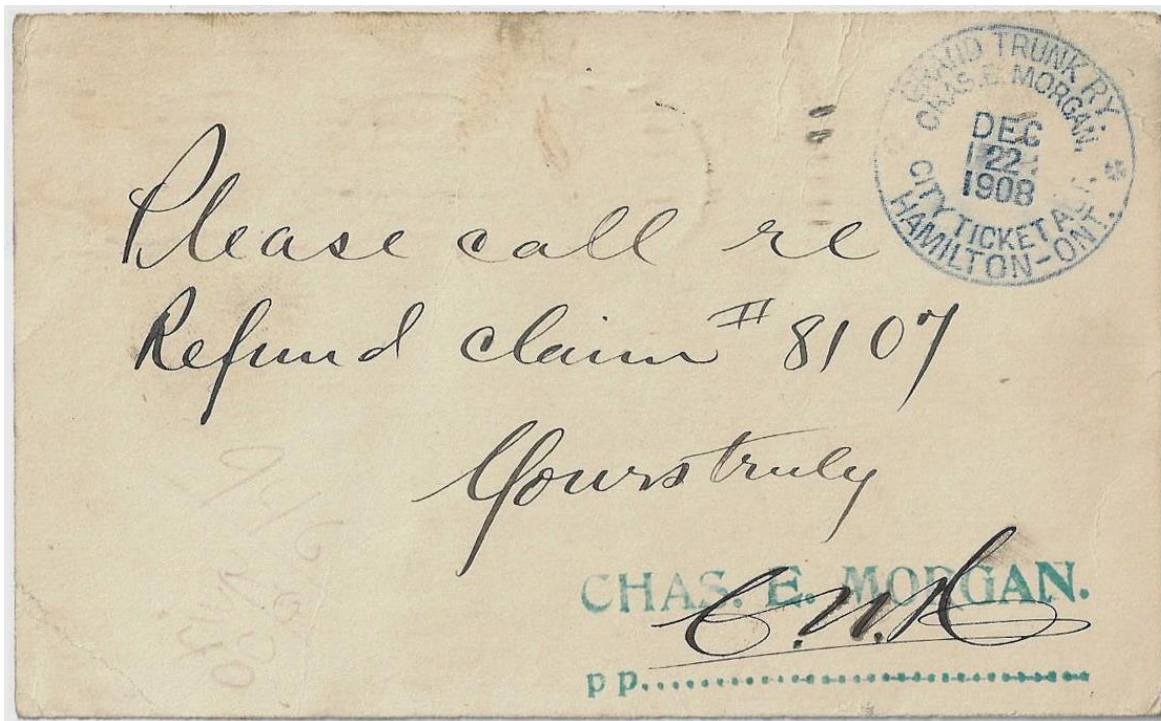 GRAND TRUNK RY.
CHAS. E. MORGAN,
DEC
22
1908
CITY TICKET AGT.
HAMILTON-ONT.
Please call re
Refund claim # 8107
Yours truly
CHAS. E. MORGAN.
pp.